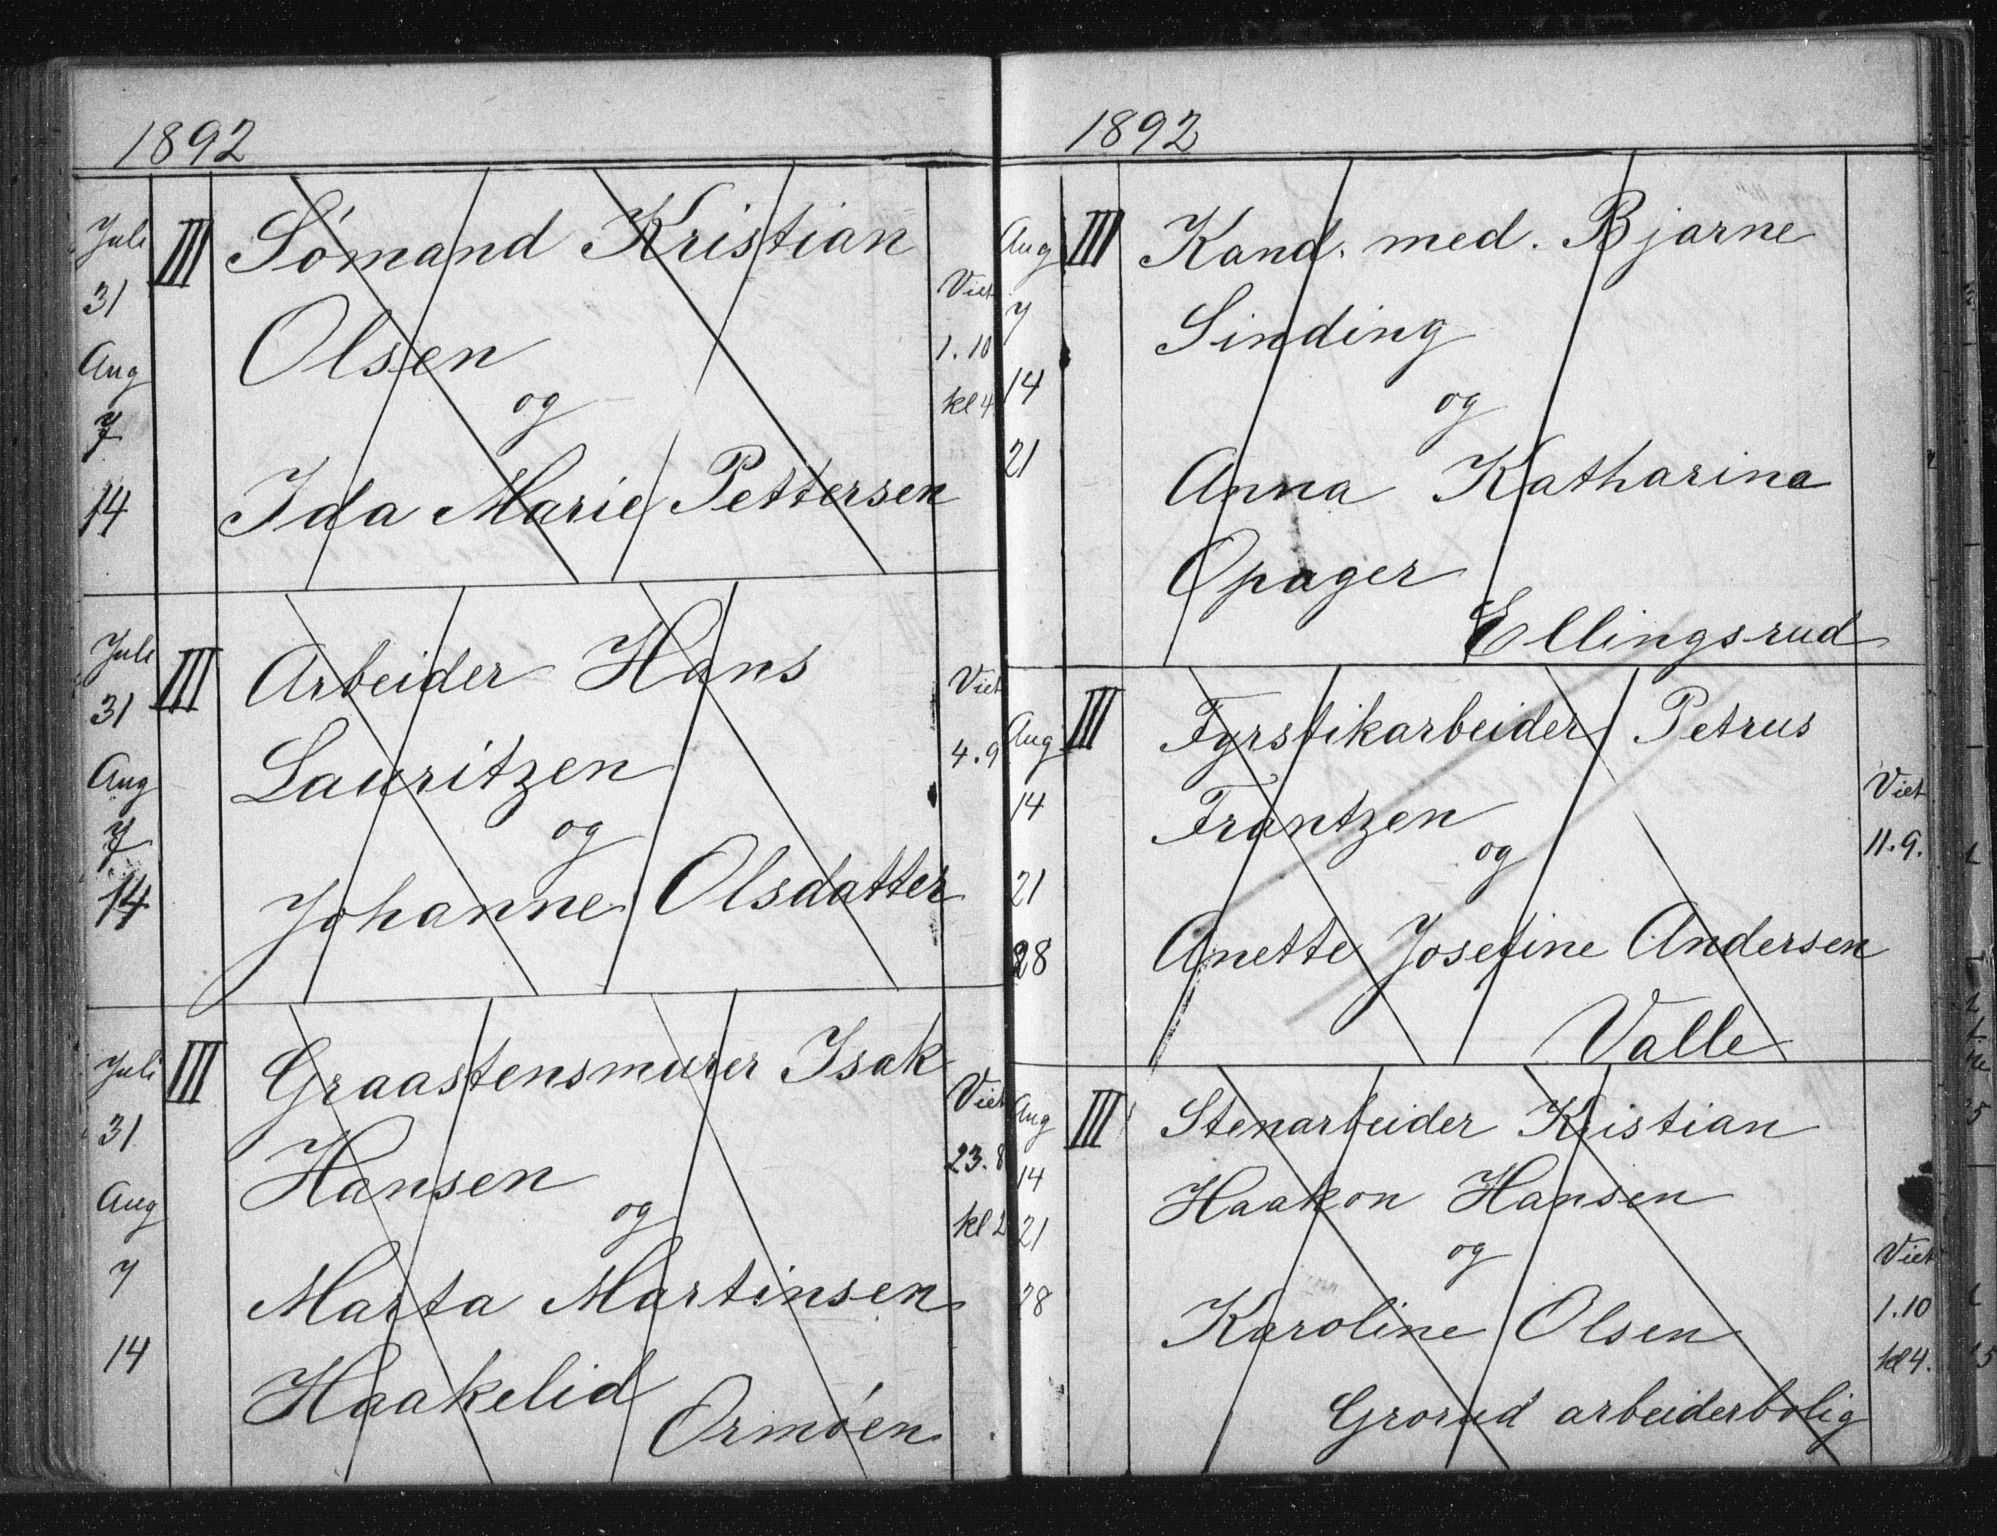 1892
Juli
31
Aug
7
14
III
Sómand Kristian
Olsen
og
Ida Marie Pettersen
Viet
1.10
kl 4
Juli
31
Aug
7
14
III
Arbeider Hans
Lauritzen
og
Johanne Olsdatter
Viet
4.9
Juli
31
Aug
7
14
III
Graastensmurer Isak
Hansen
og
Marta Martinsen
Haakelid
Ormóen
Viet
23.8
kl 2
1892
Aug
7
14
21
III
Kand. med. Bjarne
Sinding
og
Anna Katharina
Opager
Ellingsrud
Aug
14
21
28
III
Fyrstikarbeider Petrus
Frantzen
og
Anette Josefine Andersen
Valle
Viet
11.9.
Aug
14
21
28
III
Stenarbeider Kristian
Haakon Hansen
og
Karoline Olsen
Grorud arbeiderbolig
Viet
1.10
kl 4.